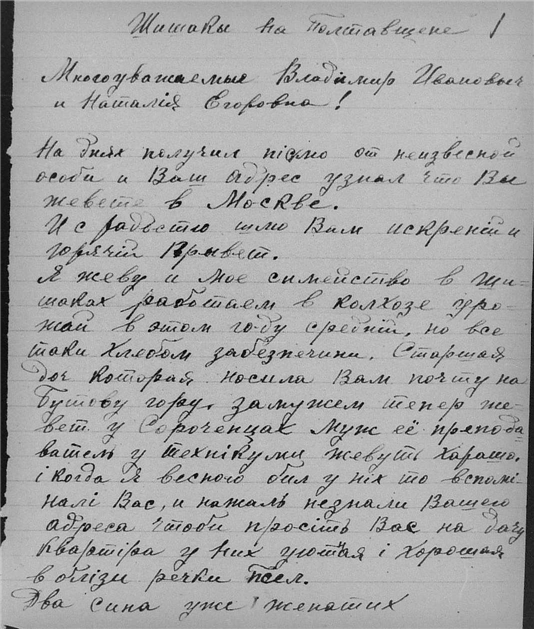 Шишаки на Полтавщене 1
Многоуважаемые Владимир Иванович
и Наталія Егоровна!
На днях получил пісмо от неизвесной
особи и Ваш адрес узнал что Вы
жевете в Москве.
И с радьстю шлю Вам искреній и
горячій Прывет.
Я жеву и мое семейство в Ши-
шаках работаем в колхозе уро-
жай в этом году средній, но все
таки хлебом забезпечини. Старшая
доч которая носила Вам почту на
Бутову гору, замужем тепер же-
вет у Сороченцах муж её препода-
ватель у технікуми жевуть харашо.
і когда я весною бил у ніх то вспомі-
налі Вас, и нажаль незнали Вашего
адреса чтоби просіть Вас на дачу
квартіра у них уютная і хорошая
в близи речки Псел.
Два сина уже женатих